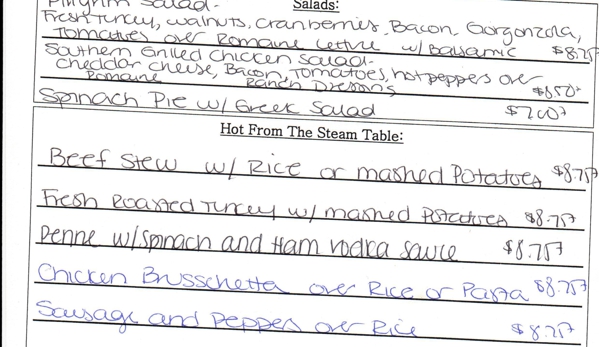 Pilgrim Salad-
Salads:
Fresh Turkey, walnuts, Cranberries, Bacon, Gorgonzola,
Tomatoes over Romaine Lettuce w/ Balsamic $8.75+
Southern Grilled Chicken Salad-
Cheddar Cheese, Bacon, Tomatoes, hot peppers over
Romaine Ranch Dressing $8.50+
Spinach Pie w/ Greek Salad $7.00+
Hot From The Steam Table:
Beef Stew w/ Rice or mashed Potatoes $8.75+
Fresh Roasted Turkey w/ mashed Potatoes $8.75+
Penne w/spinach and Ham vodka sauce $8.75+
Chicken Brusschetta over Rice or Pasta $8.75+
Sausage and Peppers over Rice $8.75+